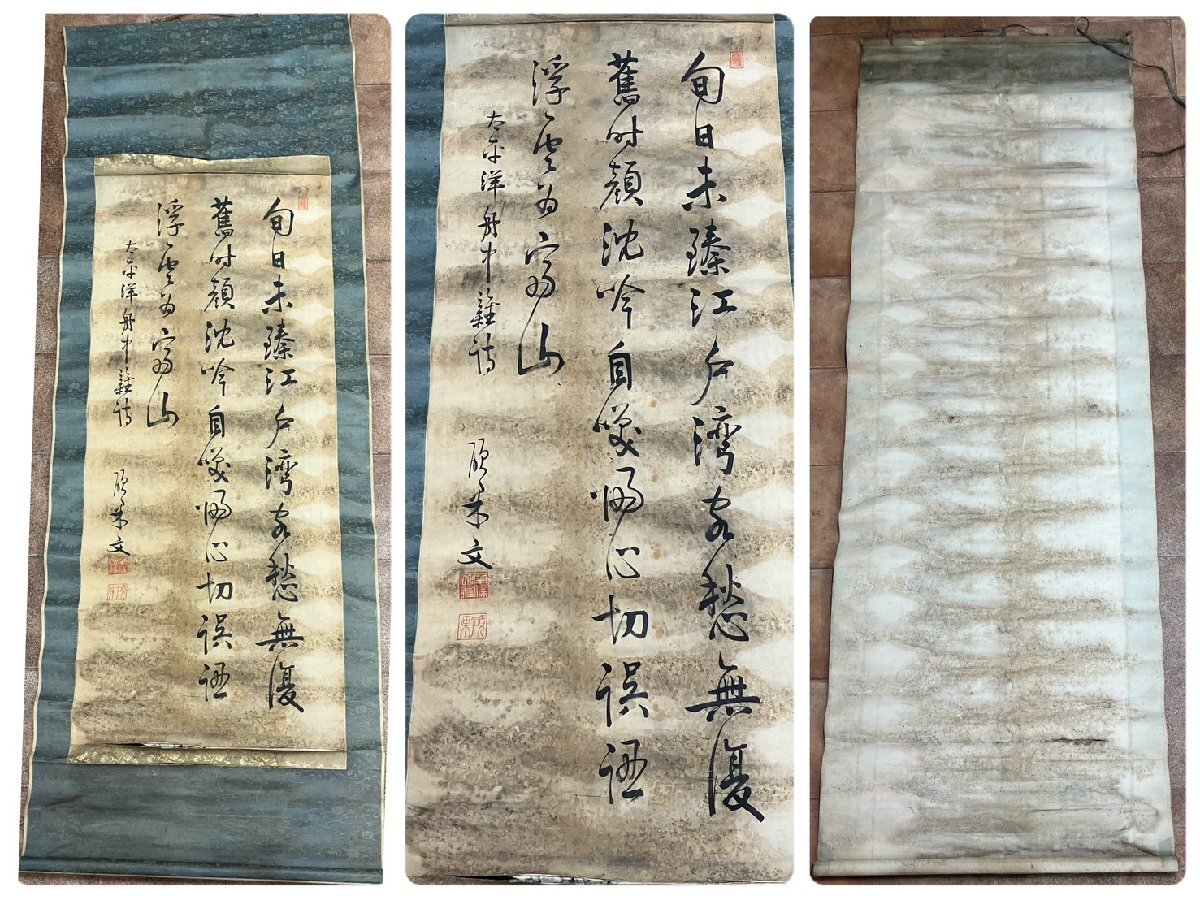 旬日未臻江戸灣客愁無復
舊时顔沈吟自咲歸心切誤認
浮雲為富山
太平洋舟中雜詩
旬日未臻江戸灣客愁無復
舊时顔沈吟自咲歸心切誤認
浮雲為富山
太平洋舟中雜詩